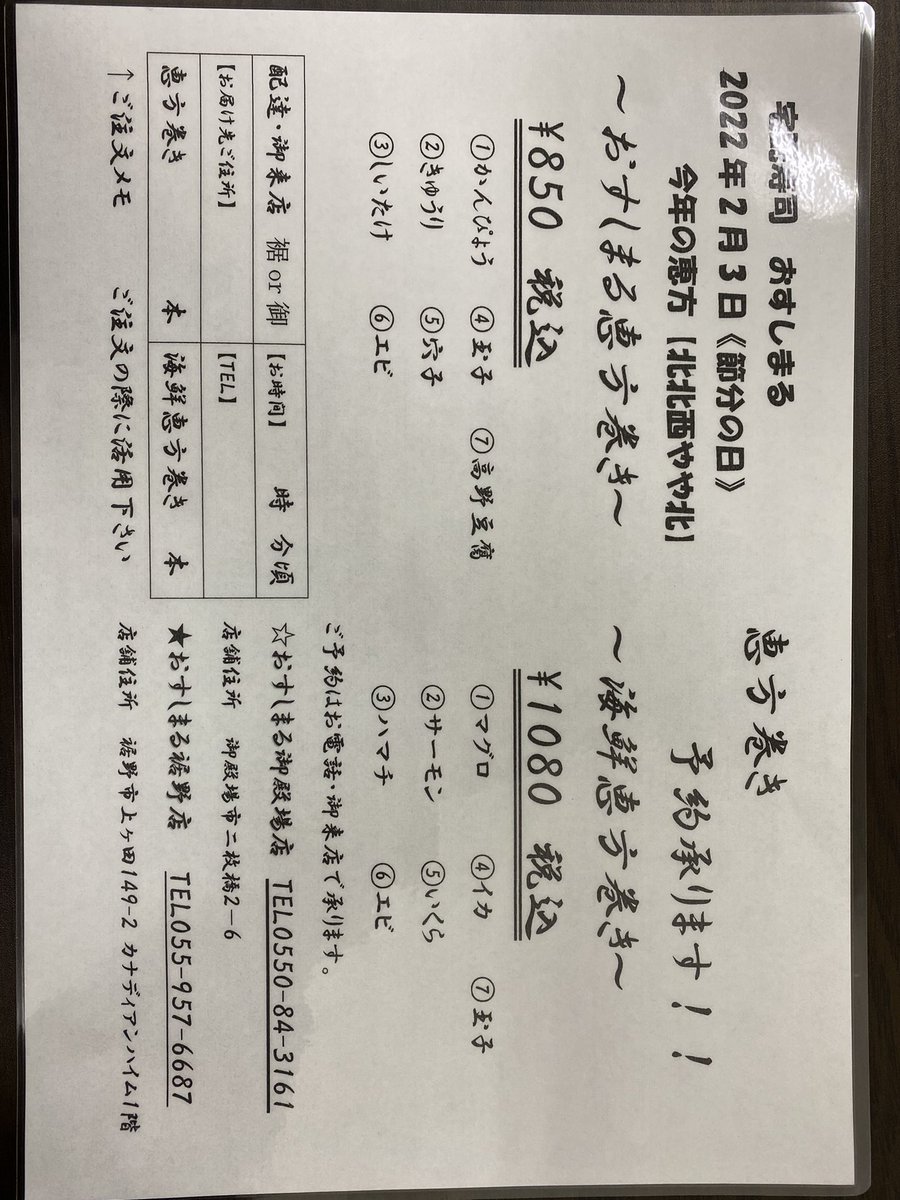 宅配寿司 おすしまる 恵方巻き
2022年2月3日《節分の日》
今年の恵方【北北西やや北】 予約承ります！！
～おすしまる恵方巻き～ ～海鮮恵方巻き～
¥850 税込 ¥1080 税込
①かんぴょう ④玉子 ⑦高野豆腐 ①マグロ ④イカ ⑦玉子
②きゅうり ⑤穴子 ②サーモン ⑤いくら
③しいたけ ⑥エビ ③ハマチ ⑥エビ
ご予約はお電話・御来店で承ります。
配達・御来店 裾or御 【お時間】 時 分頃
【お届け先ご住所】 【TEL】
恵方巻き 本 海鮮恵方巻き 本
↑ご注文メモ ご注文の際に活用下さい
☆おすしまる御殿場店 TEL0550-84-3161
店舗住所 御殿場市二枚橋2－6
★おすしまる裾野店 TEL055-957-6687
店舗住所 裾野市上ヶ田149-2 カナディアンハイム1階